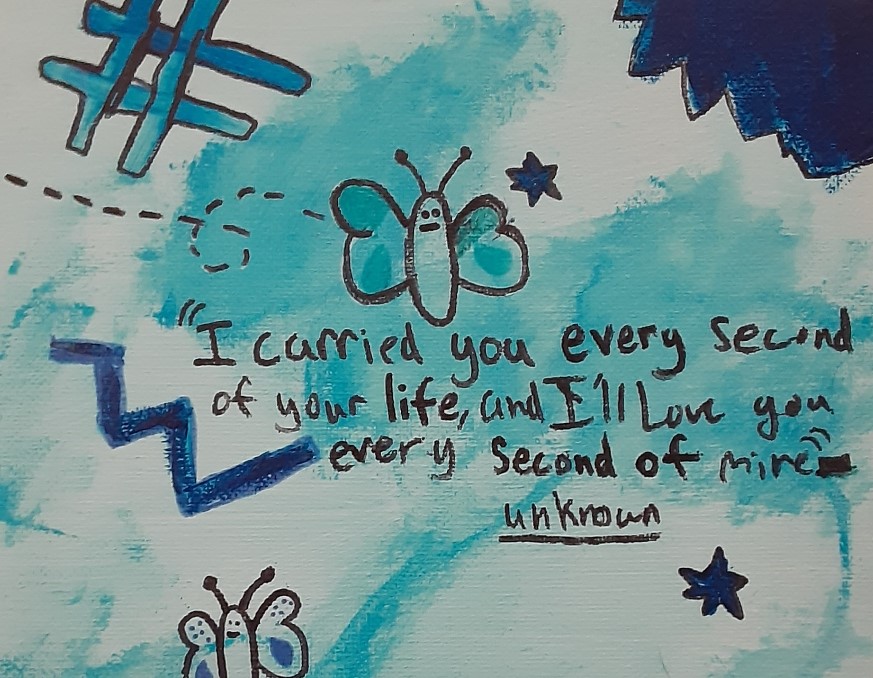 "I carried you every second
of your life, and I'll Love you
every second of mine"-
unknown